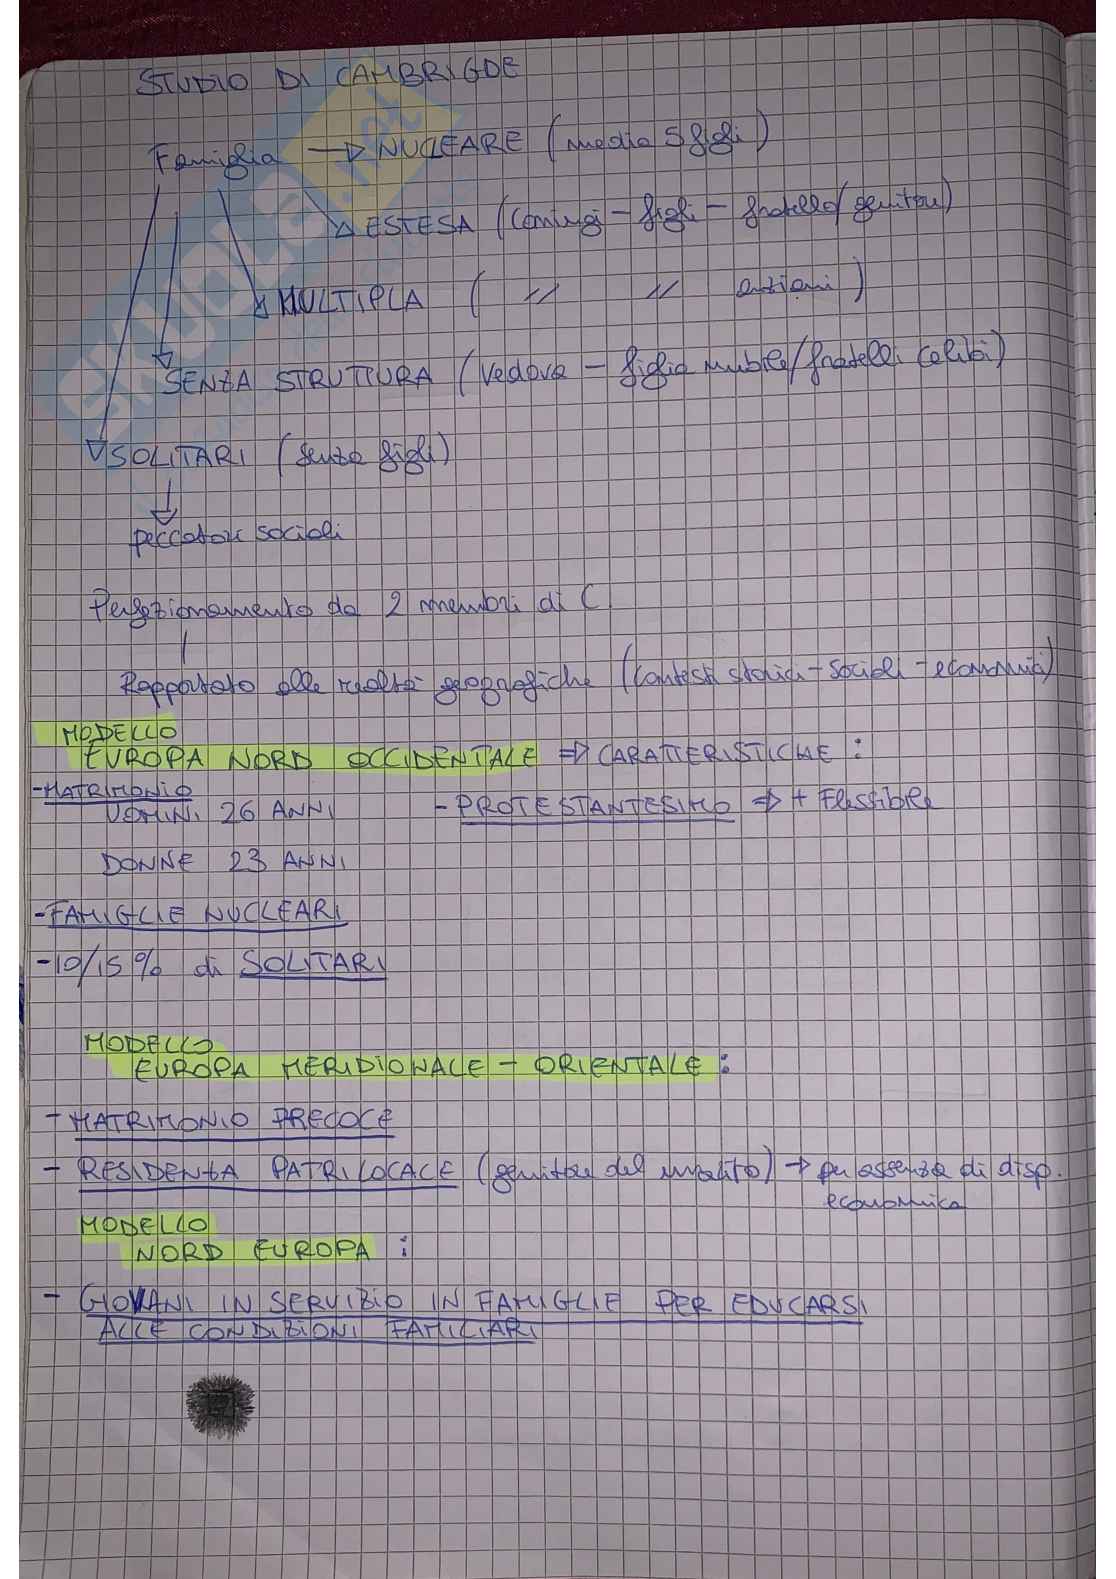 STUDIO DI CAMBRIGDE
Famiglia → NUCLEARE (media 5 figli)
ESTESA (Coniugi - figli - fratello/genitori)
MULTIPLA ( // // anziani)
SENZA STRUTTURA (Vedova - figlia nubile/fratelli celibi)
SOLITARI (senza figli)
peccatori sociali
Perfezionamento da 2 membri di C.
Rapportato alle realtà geografiche (contesti storici - sociali - economici)
MODELLO
EUROPA NORD OCCIDENTALE ⇒ CARATTERISTICHE :
- MATRIMONIO
UOMINI 26 ANNI - PROTESTANTESIMO ⇒ + Flessibile
DONNE 23 ANNI
- FAMIGLIE NUCLEARI
- 10/15 % di SOLITARI
MODELLO
EUROPA MERIDIONALE - ORIENTALE :
- MATRIMONIO PRECOCE
- RESIDENZA PATRILOCALE (genitori del marito) → per assenza di disp.
economica
MODELLO
NORD EUROPA :
- GIOVANI IN SERVIZIO IN FAMIGLIE PER EDUCARSI
ALLE CONDIZIONI FAMILIARI
SKUOLA.net